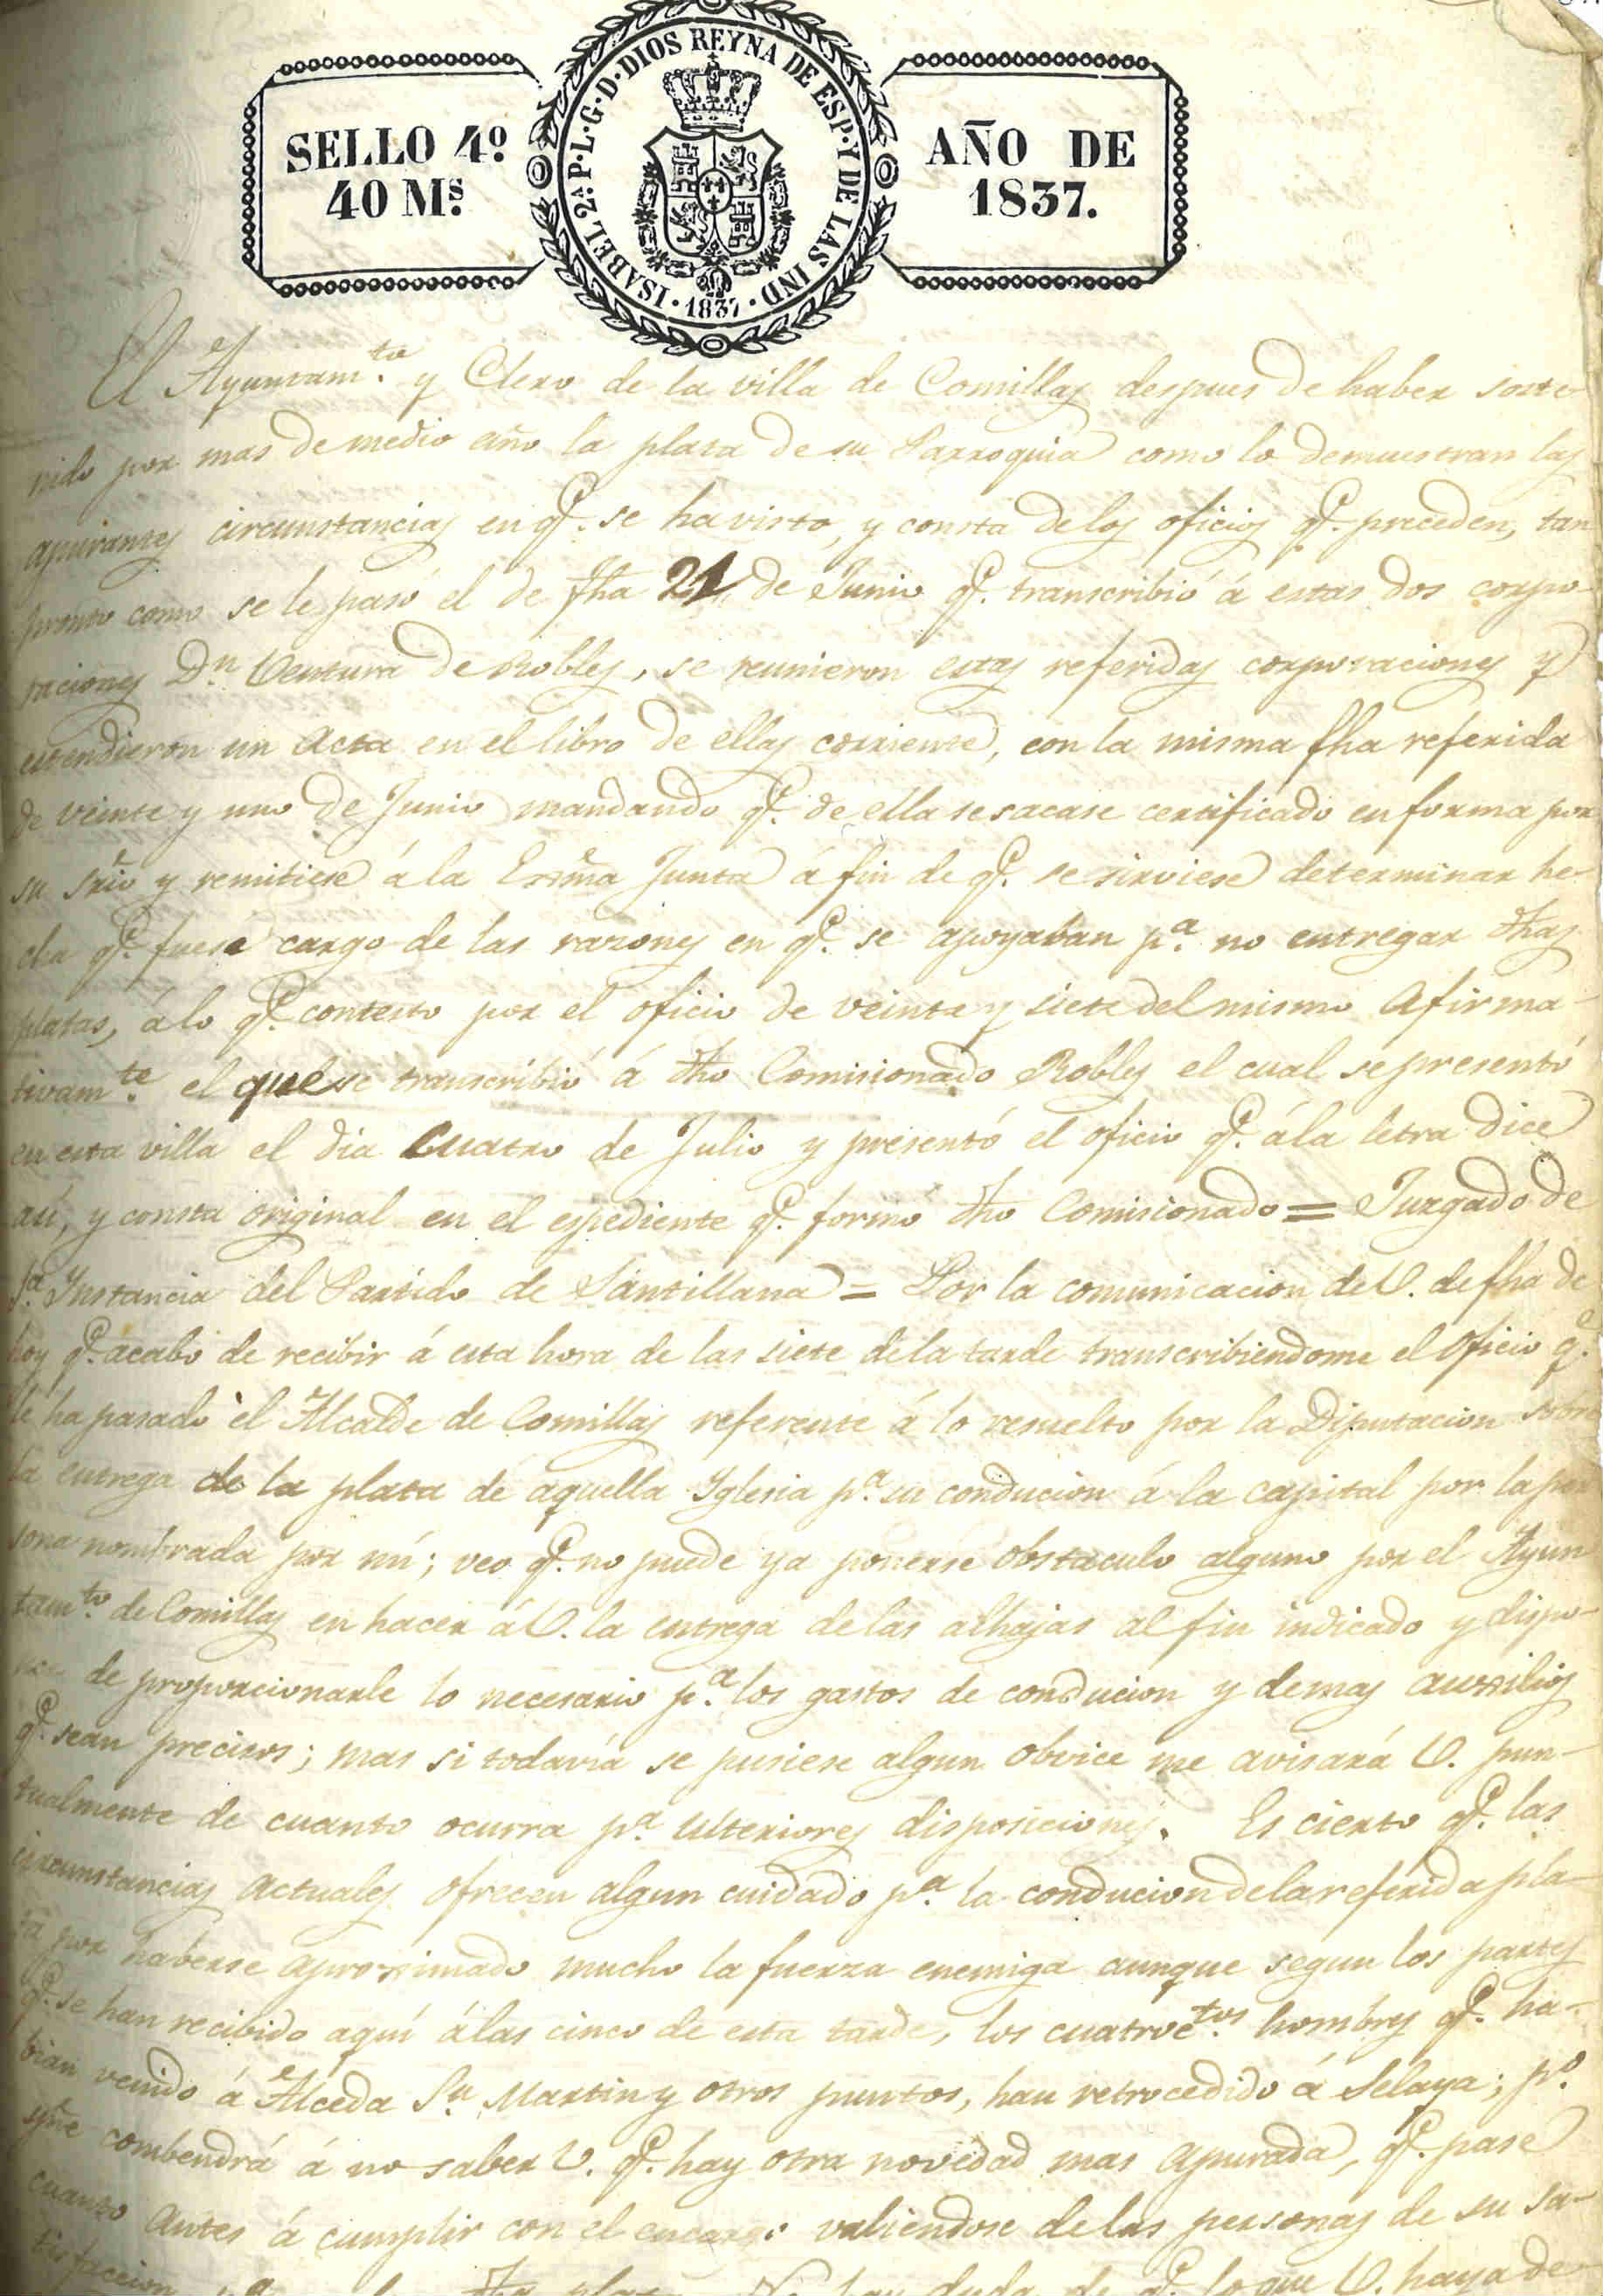 SELLO 4º
40 Mˢ.
ISABEL 2ª. P. L. G. D. DIOS REYNA DE ESP. Y DE LAS IND.
· 1837 ·
AÑO DE
1837.
El Ayuntamᵗᵒ. y Clero de la villa de Comillas despues de haber soste-
nido por mas de medio año la plata de su Parroquia como lo demuestran las
apurantes circunstancias en qᵉ. se ha visto, y consta de los oficios qᵉ. preceden, tan
pronto como se le pasó el de fha 21 de Junio qᵉ. transcribió á estas dos corpo-
raciones Dⁿ Ventura de Robles, se reunieron estas referidas corporaciones y
estendieron un Acta en el libro de ellas corriente, con la misma fha referida
de veinte y uno de Junio mandando qᵉ. de ella se sacase certificado en forma por
su srio y remitiese á la Exma Junta á fin de qᵉ. se sirviese determinar he-
cha qᵉ. fuese cargo de las razones en qᵉ. se apoyaban pᵃ. no entregar dhas
platas, á lo qᵉ. contesto por el oficio de veinte y siete del mismo Afirma-
tivamᵗᵉ. el que se transcribió á dho Comisionado Robles el cual se presentó
en esta villa el dia cuatro de Julio y presentó el oficio qᵉ. á la letra dice
asi, y consta original en el espediente qᵉ. formó dho Comisionado = Juzgado de
1ª. Instancia del Partido de Santillana = Por la comunicacion de V. de fha de
hoy qᵉ. acabo de recibir á esta hora de las siete de la tarde transcribiendome el Oficio qᵉ.
le ha pasado el Alcalde de Comillas referente á lo resuelto por la Diputacion sobre
la entrega de la plata de aquella Yglesia pᵃ. su conducion á la capital por la per
sona nombrada por mi; veo qᵉ. no puede ya ponerse obstaculo alguno por el Ayun
tamᵗᵒ. de Comillas en hacer á V. la entrega de las alhajas al fin indicado y dispo-
de proporcionarle lo necesario pᵃ. los gastos de conducion y demas aussilios
qᵉ. sean precisos; mas si todavía se pusiese algun obvice me avisará V. pun-
tualmente de cuanto ocurra pᵃ. ulteriores disposiciones. Es cierto qᵉ. las
circunstancias actuales ofrecen algun cuidado pᵃ. la conducion de la referida pla-
ta por haberse aprossimado mucho la fuerza enemiga aunque segun los partes
qᵉ. se han recibido aqui á las cinco de esta tarde, los cuatrocᵗᵒˢ. hombres qᵉ. ha-
bian venido á Alceda Sⁿ. Martin y otros puntos, han retrocedido á Selaya; pº.
spre combendrá á no saber V. qᵉ. hay otra novedad mas apurada, qᵉ. pase
cuanto antes á cumplir con el encargo valiendose de las personas de su sa-
tisfaccion pᵃ. dha plata. No hay duda de qᵉ. lo que V. haya de